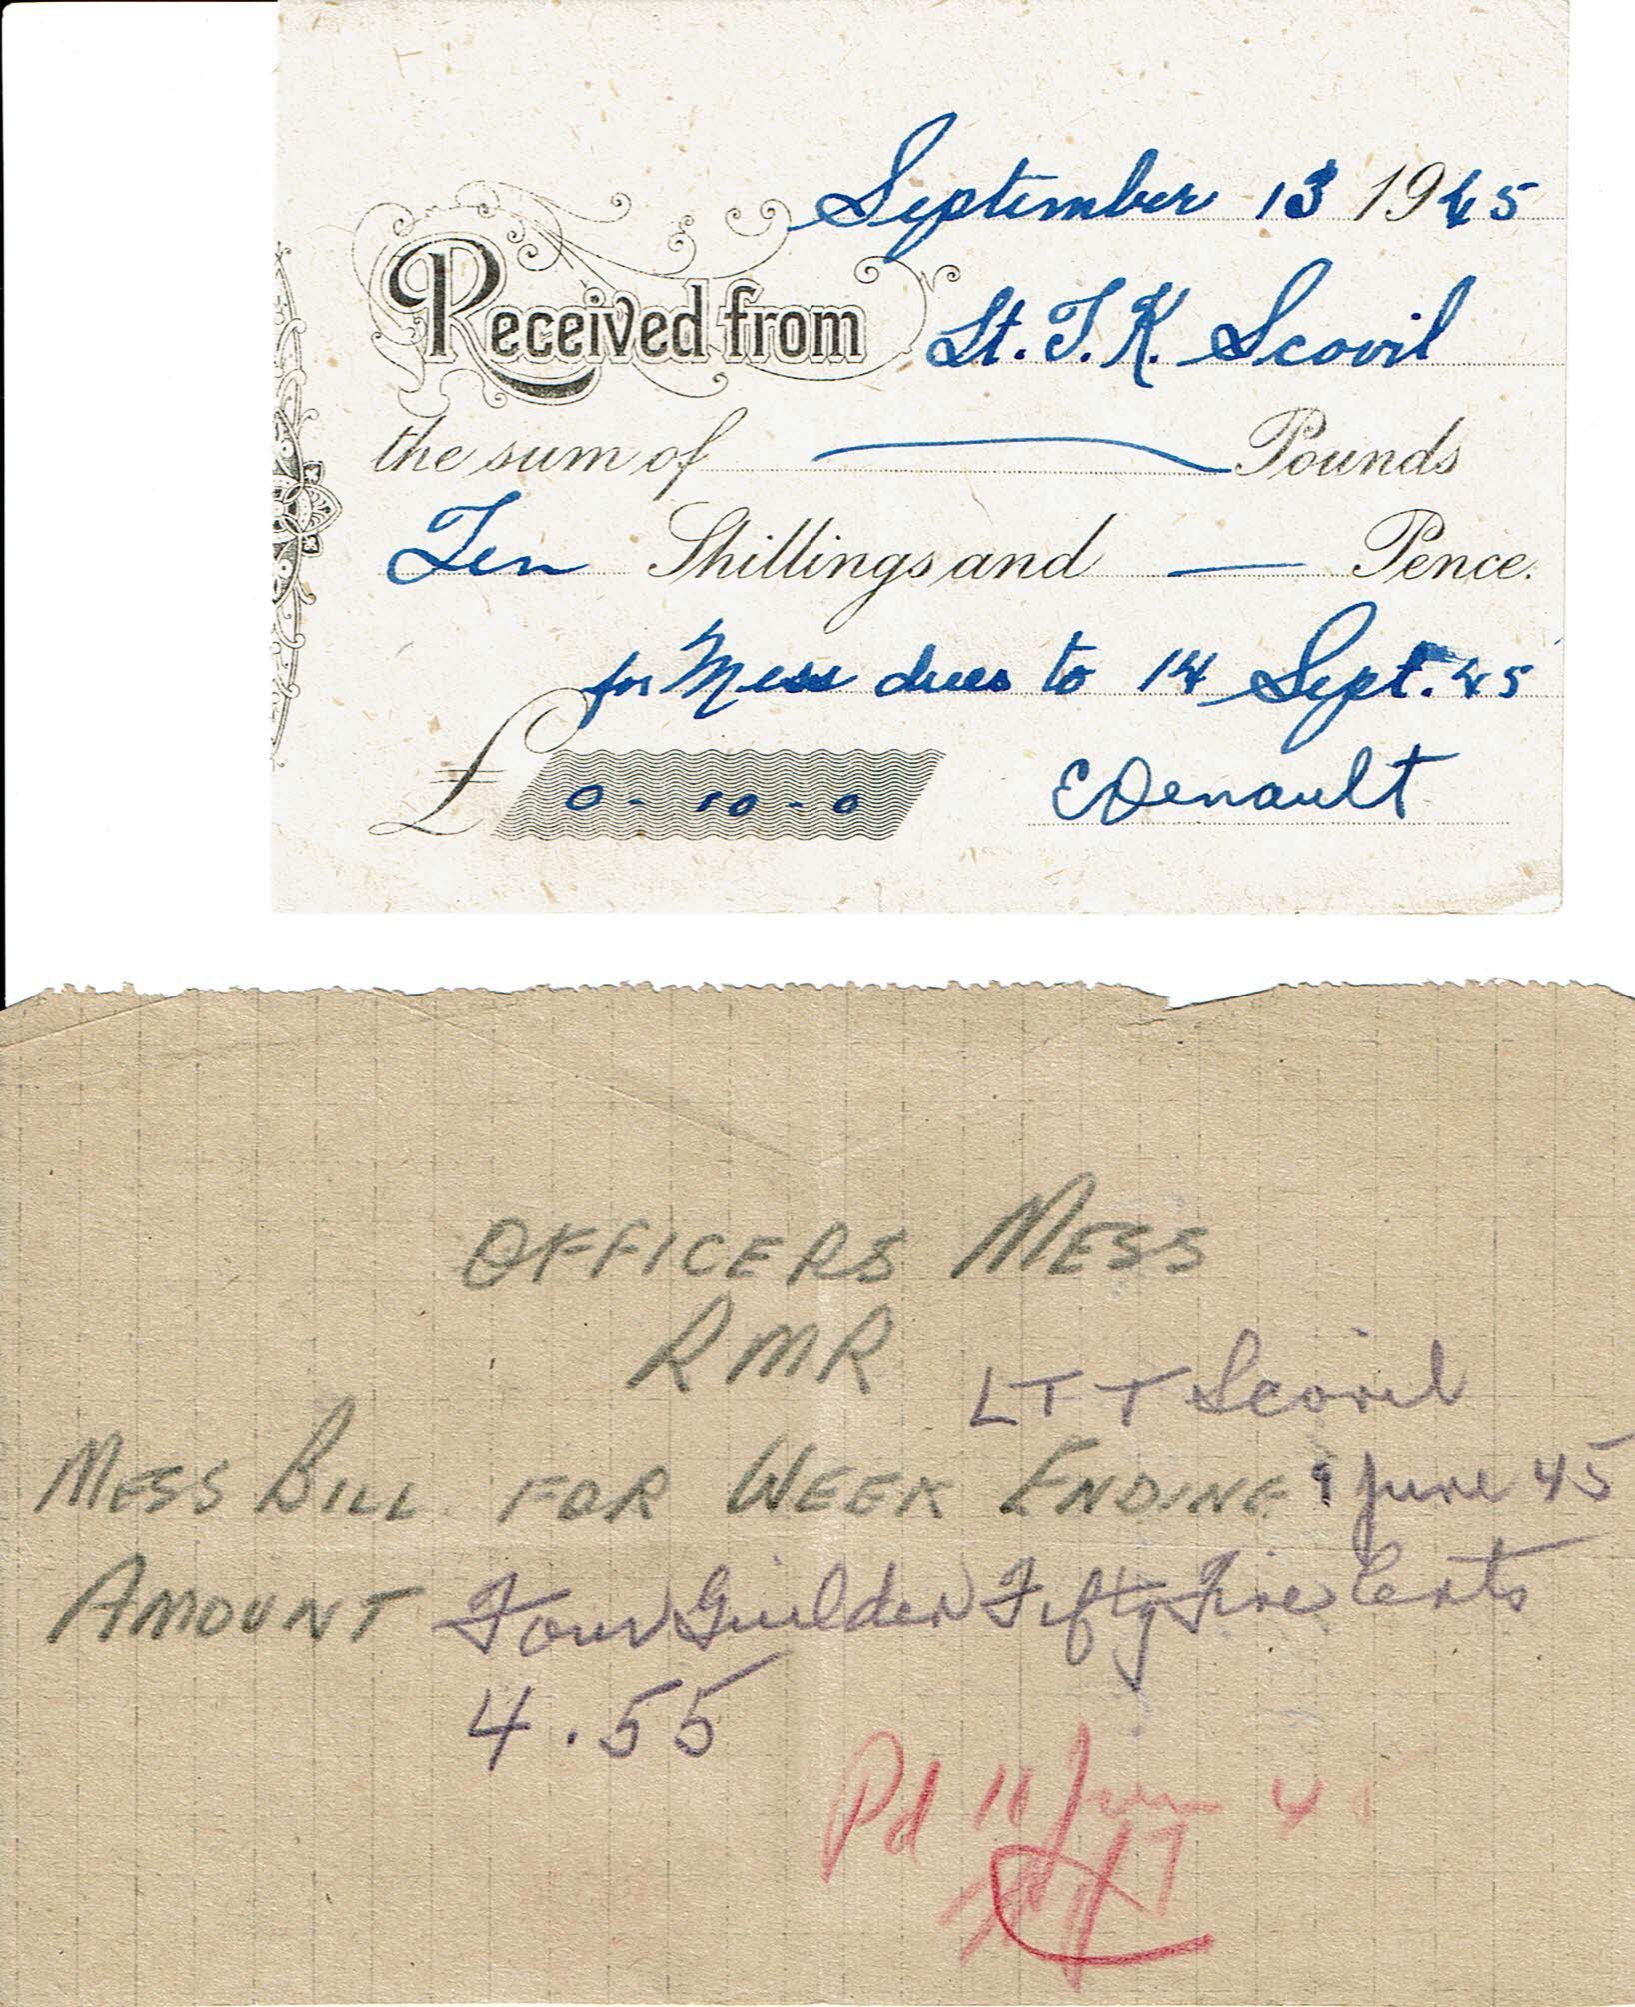 September 13 1945
Received from Lt. T. K. Scovil
the sum of — Pounds
Ten Shillings and — Pence.
for Mess dues to 14 Sept. 45
£ 0 - 10 - 0 E Denault
OFFICERS MESS
RMR
LT T Scovil
MESS BILL FOR WEEK ENDING 9 June 45
AMOUNT Four Guilder Fifty Five Cents
4.55
Pd 11 Jun 45